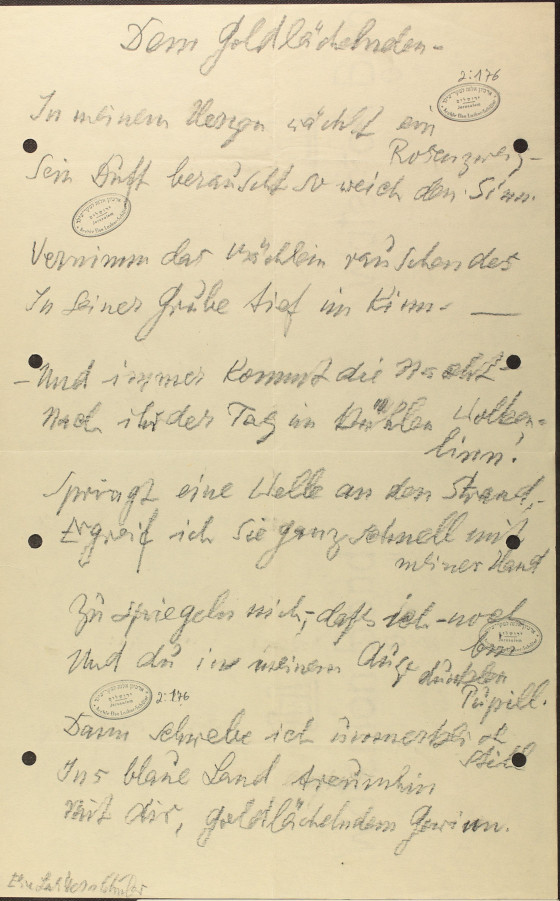 Dem Goldlächelnden -
2:176
In meinem Herzen wächst ein
Rosenzweig -
Sein Duft berauscht so weich den Sinn.
Vernimm das Bächlein rauschen des
In seiner Grübe tief im Kinn - —
- Und immer kommt die Nacht -
Nach ihr der Tag im kühlen Wolken-
linn!
Springt eine Welle an den Strand,-
Ergreif ich sie ganz schnell mit
meiner Hand
Zu spiegeln mich,- dass ich - noch
bin
Und du in meinem Aug dunklen
Pupill.
2:176
Dann schwebe ich
still
Ins blaue Land träumhin
Mit dir, goldlächelndem Gewinn.
Else Lasker-Schüler